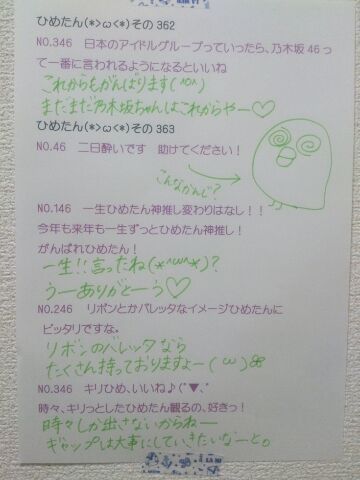 ひめたん(*>ω<*)その 362
NO.346 日本のアイドルグループっていったら、乃木坂 46 っ
て一番に言われるようになるといいね
これからもがんばります(^o^)
まだまだ乃木坂ちゃんはこれからやー♡
ひめたん(*>ω<*)その 363
NO.46 二日酔いです 助けてください！
こんなかんじ？
NO.146 一生ひめたん神推し変わりはなし！！
今年も来年も一生ずっとひめたん神推し！
がんばれひめたん！
一生!!言ったね(*^ω^*)?
うーありがとーう♡
NO.246 リボンとかバレッタなイメージひめたんに
ピッタリですな。
リボンのバレッタなら
たくさん持っておりますよー(ω)
NO.346 キリひめ、いいね♪(*▼、
時々、キリっとしたひめたん観るの、好きっ！
時々しか出さないからねー
ギャップは大事にしていきたいなーと。